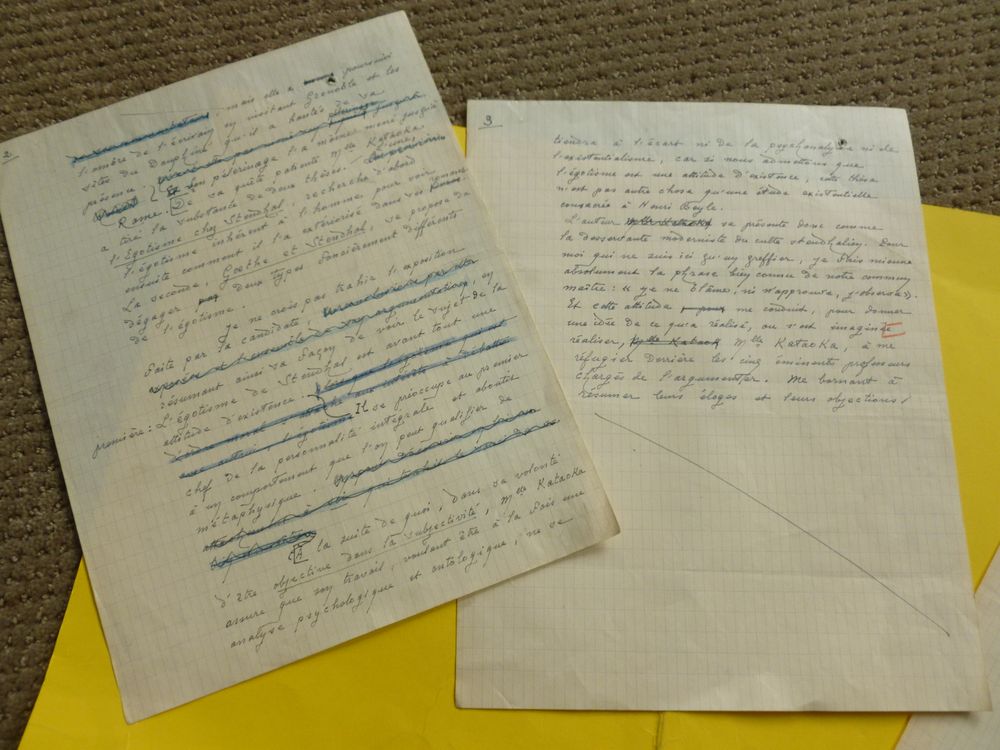 2
mais elle a poursuivi
l'ombre de l'écrivain en visitant Grenoble et les
sites du Dauphiné qu'il a hantés de sa
présence. Et son pèlerinage l'a même menée jusqu'à
Rome. De ca quête patiente Mlle Kataoka
a tiré la substance de deux thèses. L'une,
l'Egotisme chez Stendhal, recherche d'abord
l'égotisme inhérent à l'homme, pour voir
ensuite comment il l'a extériorisé dans ses romans
La seconde, Goethe et Stendhal, se propose de
dégager deux types foncièrement différents
de l'égotisme.
Je ne crois pas trahir l'exposition
faite par la candidate, en
résumant ainsi sa façon de voir le sujet de la
première: L'égotisme de Stendhal est avant tout une
attitude d'existence.
Il se préoccupe au premier
chef de la personnalité intégrale et aboutit
à un comportement que l'on peut qualifier de
métaphysique.
A la suite de quoi, dans sa volonté
d'être objective dans la subjectivité, Mlle Kataoka
assure que son travail, voulant être à la fois une
analyse psychologique et ontologique, ne se
3
tiendra à l'écart ni de la psychanalyse ni de
l'existentialisme, car si nous admettons que
l'égotisme est une attitude d'existence, cette thèse
n'est pas autre chose qu'une étude existentielle
consacrée à Henri Beyle.
L'auteur Mlle Kataoka se présente donc comme
la desservante moderniste du culte stendhalien. Pour
moi qui ne suis ici qu'un greffier, je fais mienne
absolument la phrase bien connue de notre commun
maître: « je ne blâme, ni n'approuve, j'observe ».
Et cette attitude me conduit, pour donner
une idée de ce qu'a réalisé, ou s'est imaginé
réaliser, Mlle Kataoka, à me
réfugier derrière les cinq éminents professeurs
chargés de l'argumenter. Me bornant à
résumer leurs éloges et leurs objections,